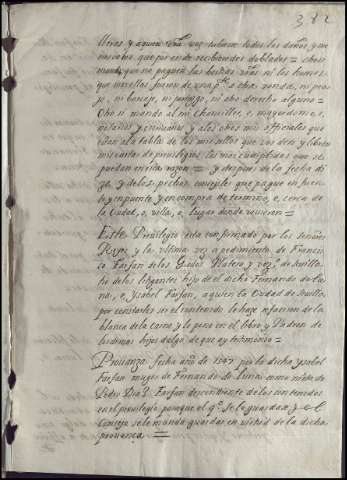 382
lleros, y aquien
todos los daños, y me
noscabos que por ende recibiesedes doblados = Otrosi
mando que no paguen las bestias
ni los homes
que con ellas fueren de una p.te a otra, ronda, ni pea
je, ni barcaje, ni portazgo, ni otro derecho alguno =
Otrosi mando al mi Chanciller, e, mayordomo, e,
notarios y escrivanos y a los otros mis officiales que
estan a la tabla de los mis sellos que vos den, y libren
mis cartas de privilegios, las mas cumplidas que se
puedan en esta razon = y despues de la fecha di
ga, y de los pechos concejales que pague en fuen
te, y en puente, y en compra de termino, o, cerca de
la Ciudad, o, villa, o, lugar donde vivieren =
Este Privilegio esta confirmado por los señores
Reyes y la ultima vez a pedimiento de Francis
co Farfan de los Godos Platero y vez.o de Sevilla
hijo de el dicho Fernando de Lu
na, e Ysabel Farfan, a quien la Ciudad de Sevilla
por constarle ser el contenido le hizo refaccion de la
blanca de la carne, y lo puso en el libro, y Padron de
los demas hijos dalgo de que ay testimonio =
Provanza fecha año de 1507 por la dicha Ysabel
Farfan muger de Fernando de Luna como nieta de
Pedro Diaz Farfan descendiente de los contenidos
en el privilegio para que el q.o se le guardase y el
Concejo se lo mando guardar en virtud de la dicha
provanza =